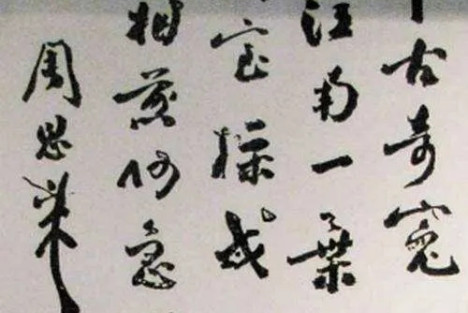 千古奇冤
江南一葉
室操戈
相煎何急
周恩来